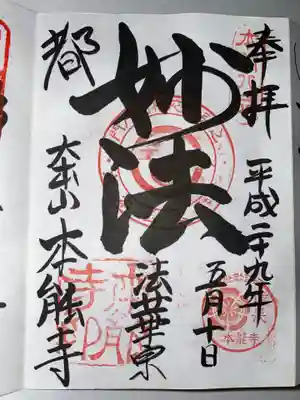 奉拝
平成二十九年
五月十日
妙法
法華宗
都
大本山本能寺
本能寺